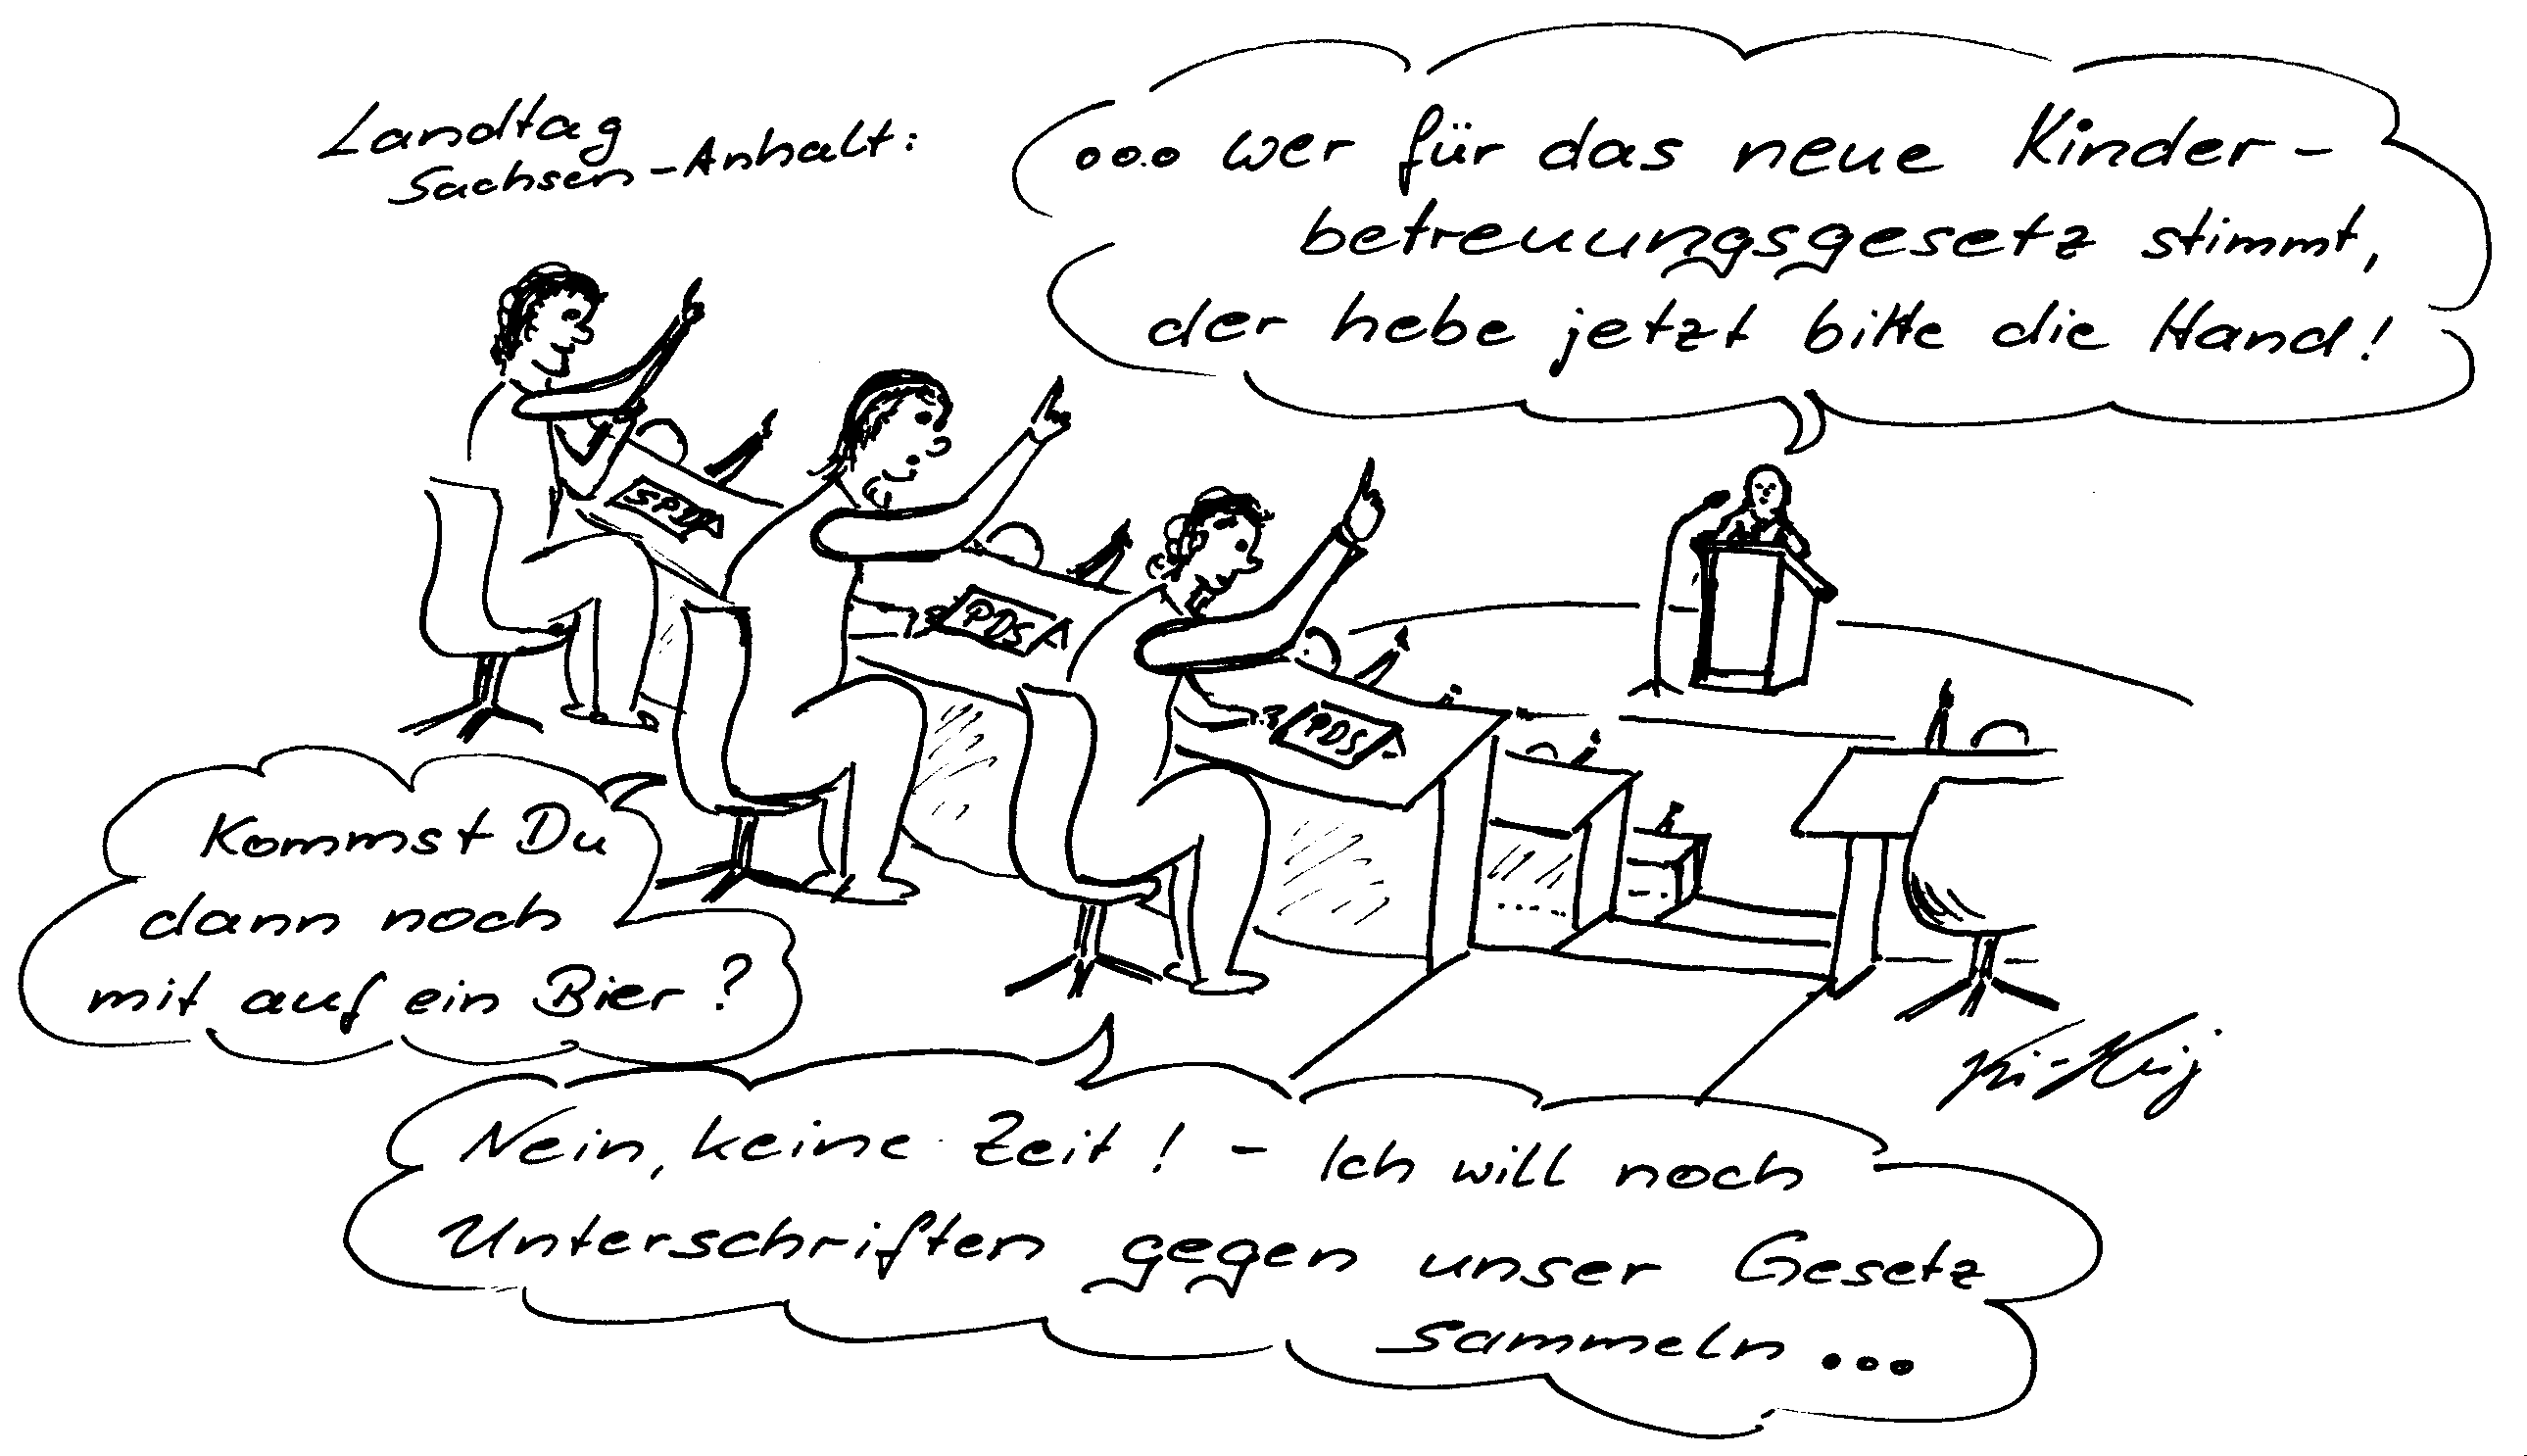 Landtag
Sachsen-Anhalt:
... wer für das neue Kinder-
betreuungsgesetz stimmt,
der hebe jetzt bitte die Hand!
SPD
PDS
PDS
Kommst Du
dann noch
mit auf ein Bier?
Nein, keine Zeit! - Ich will noch
Unterschriften gegen unser Gesetz
sammeln ...